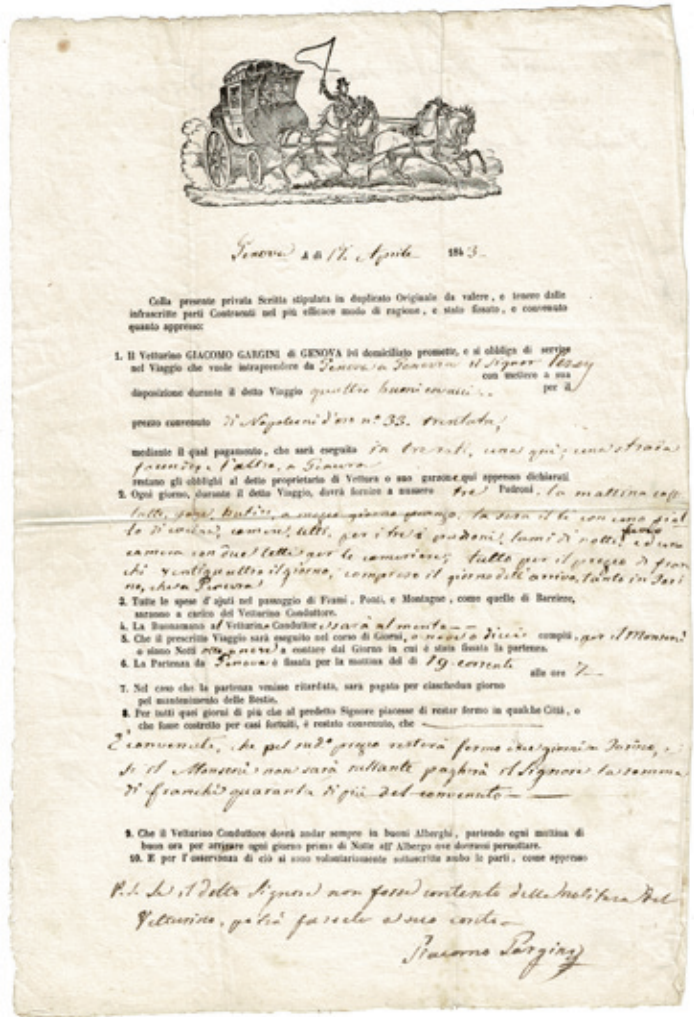 Genova A di 17. Aprile 1843
Colla presente privata Scritta stipulata in duplicato Originale da valere, e tenere dalle
infrascritte parti Contraenti nel più efficace modo di ragione, e stato fissato, e convenuto
quanto appresso:
1. Il Vetturino GIACOMO GARGINI di GENOVA ivi domiciliato promette, e si obbliga di servire
nel Viaggio che vuole intraprendere da Genova a Genevra il Signor
con mettere a sua
disposizione durante il detto Viaggio quattro buoni cavalli per il
prezzo convenuto di Napoleoni d'oro n.º 33. trentatre,
mediante il qual pagamento, che sarà eseguito in tre rati, una qui, una strada
facendo, e l'altra, a Ginevra
restano gli obblighi al detto proprietario di Vettura o suo garzone qui appresso dichiarati
2. Ogni giorno, durante il detto Viaggio, dovrà fornire a numero tre Padroni, la mattina caffè
latte, pane, butiro, a mezzo giorno pranzo, la sera il tè con una piat
to di camere, letti, per i tre padroni, lumi di notte, fuoco ed una
camera con due letti per le cameriere, tutto per il prezzo di fran
chi ventiquattro il giorno, compreso il giorno dell'arrivo, tanto in Tori
no, che a Ginevra
3. Tutte le spese d'ajuti nel passaggio di Fiumi, Ponti, e Montagne, come quelle di Barriere,
saranno a carico del Vetturino Conduttore.
4. La Buonamano al Vetturino Conduttore sarà
5. Che il prescritto Viaggio sarà eseguito nel corso di Giorni, o nove o dieci compiti, per il Monseni
o siano Notti a contare dal Giorno in cui è stata fissata la partenza.
6. La Partenza da Genova è fissata per la mattina del di 19 corrente
alle ore 7
7. Nel caso che la partenza venisse ritardata, sarà pagato per ciaschedun giorno
pel mantenimento delle Bestie.
8. Per tutti quei giorni di più che al predetto Signore piacesse di restar fermo in qualche Città, o
che fosse costretto per casi fortuiti, è restato convenuto, che
È convenuto, che pel sud.º prezzo resterà fermo due giorni a Torino, e
se il Monseni non sarà pagherà il Signore la somma
di franchi quaranta di più del convenuto
9. Che il Vetturino Conduttore dovrà andar sempre in buoni Alberghi, partendo ogni mattina di
buon ora per arrivare ogni giorno prima di Notte all'Albergo ove dovranno pernottare.
10. E per l'osservanza di ciò si sono volontariamente sottoscritte ambo le parti, come appresso
P.S. Se il detto Signore non fosse contento della del
Vetturino, potrà farselo a suo conto
Giacomo Gargini